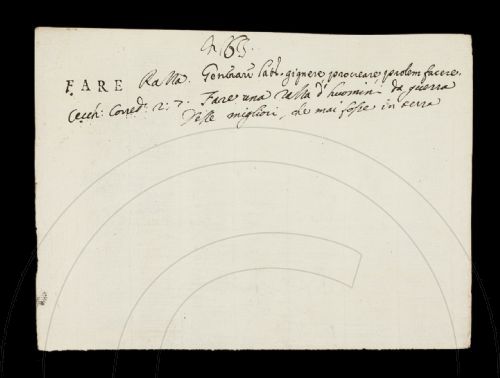 FARE Razza. Generare Lat. gignere, procreare, prolem facere.
Cecch: Cored: 2: 7. Fare una razza d'huomini da guerra
Delle migliori, che mai fosse in terra